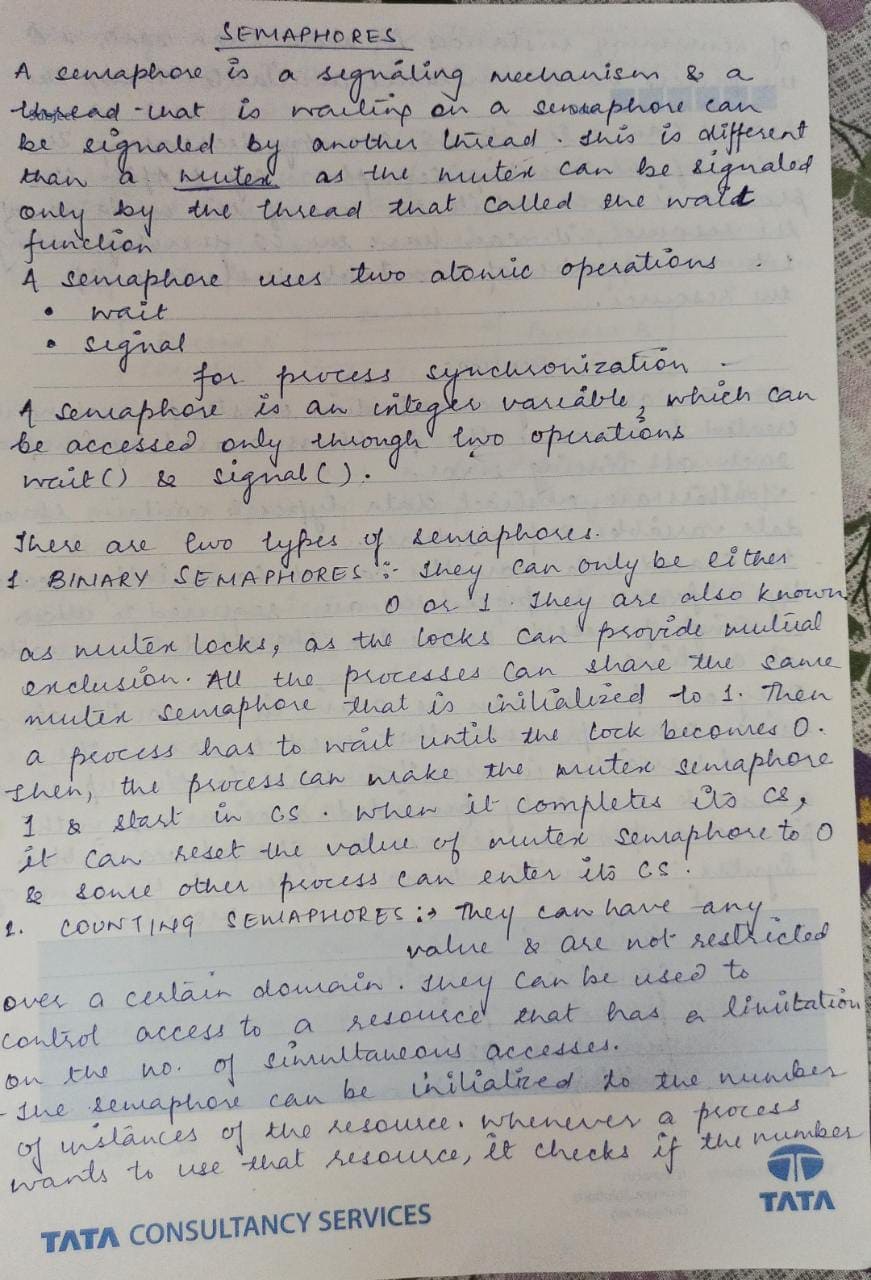 SEMAPHORES
A semaphore is a signaling mechanism & a
thread that is waiting on a semaphore can
be signaled by another thread. This is different
than a mutex as the mutex can be signaled
only by the thread that called the wait
function
A semaphore uses two atomic operations
• wait
• signal
for process synchronization.
A semaphore is an integer variable, which can
be accessed only through two operations
wait() & signal().
There are two types of semaphores.
1. BINARY SEMAPHORES :- They can only be either
0 or 1. They are also known
as mutex locks, as the locks can provide mutual
exclusion. All the processes can share the same
mutex semaphore that is initialized to 1. Then
a process has to wait until the lock becomes 0.
Then, the process can make the mutex semaphore
1 & start in CS. When it completes its CS,
it can reset the value of mutex semaphore to 0
& some other process can enter its CS.
2. COUNTING SEMAPHORES :→ They can have any
value & are not restricted
over a certain domain. They can be used to
control access to a resource that has a limitation
on the no. of simultaneous accesses.
The semaphore can be initialized to the number
of instances of the resource. Whenever a process
wants to use that resource, it checks if the number
TATA CONSULTANCY SERVICES
TATA